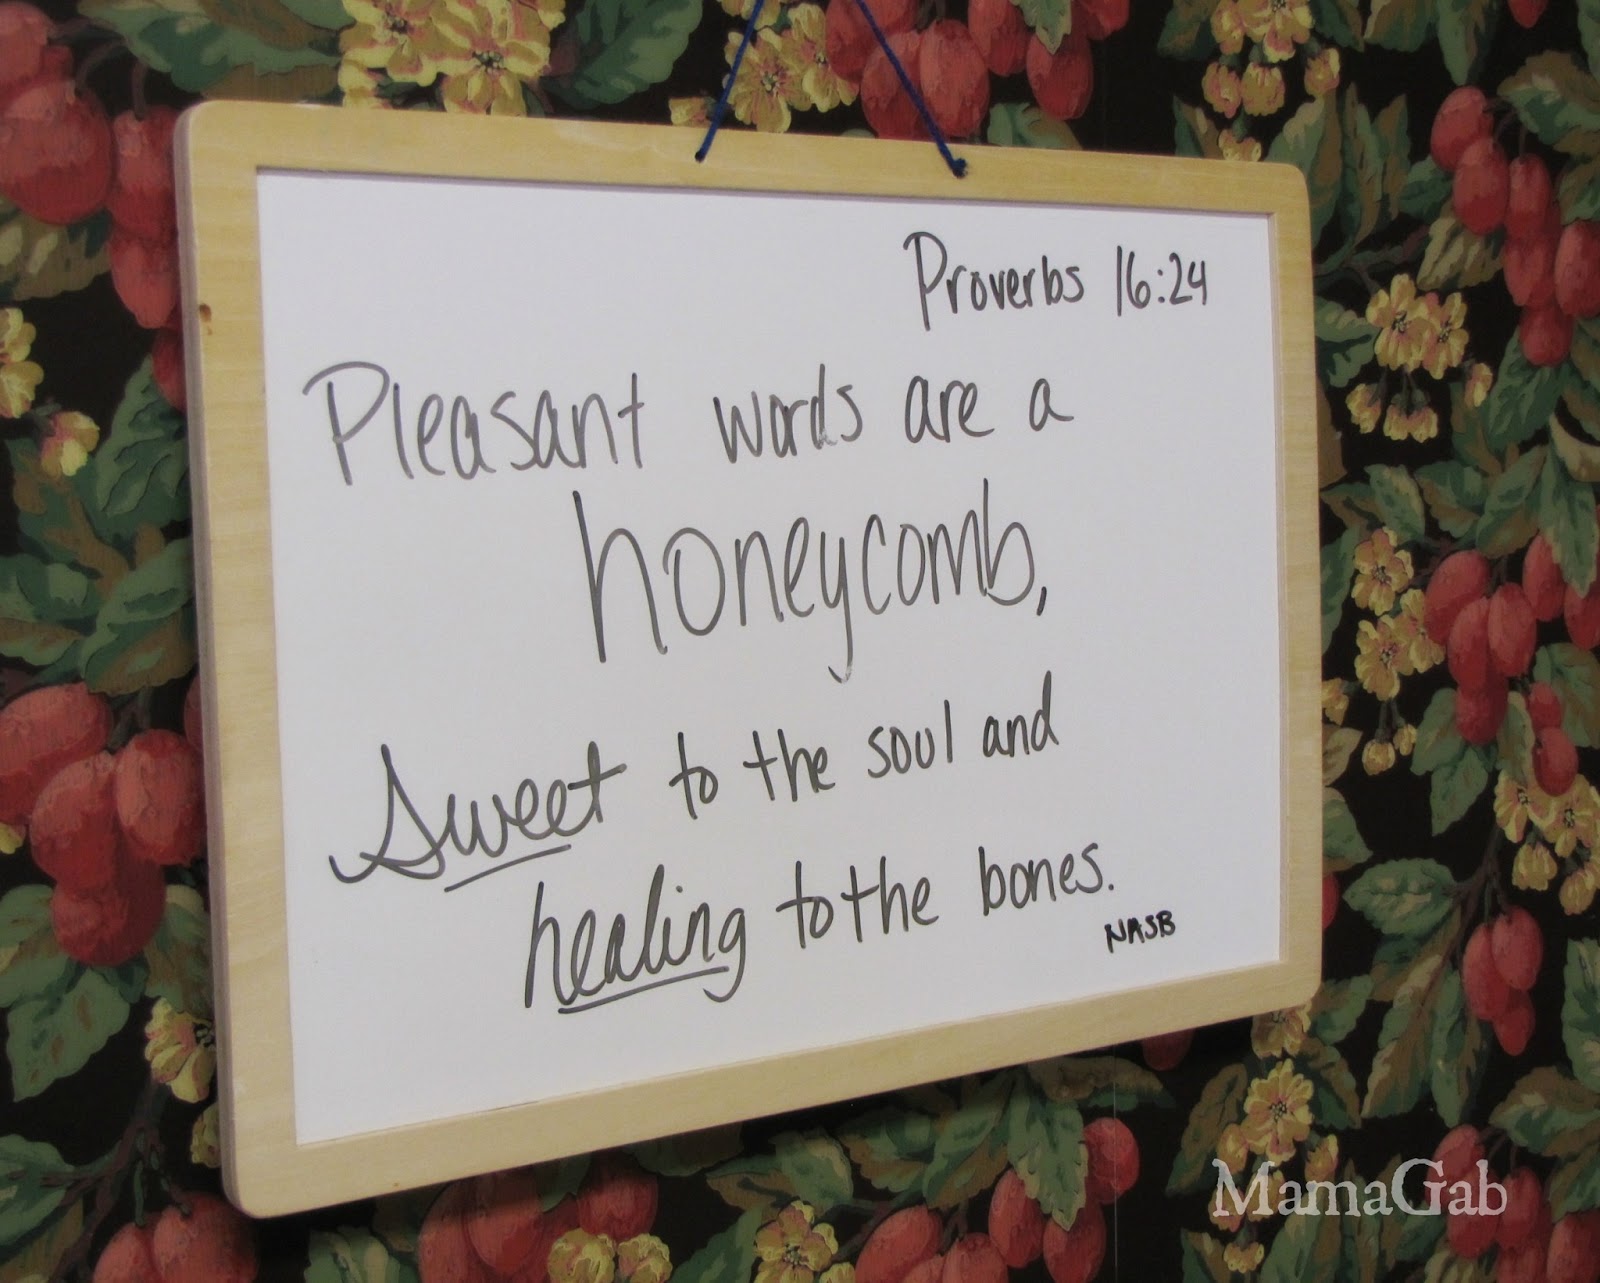 Proverbs 16:24
Pleasant words are a
honeycomb,
Sweet to the soul and
healing to the bones.
NASB
MamaGab